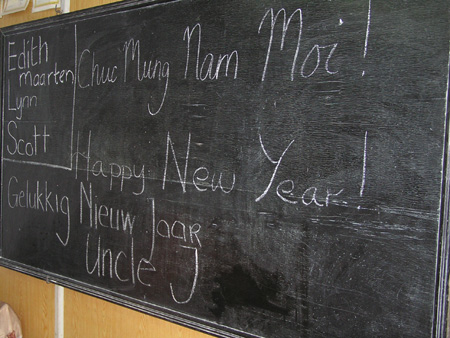 Edith
maarten
Lynn
Scott
Chuc Mung Nam Moi!
Happy New Year!
Gelukkig Nieuw Jaar
Uncle J